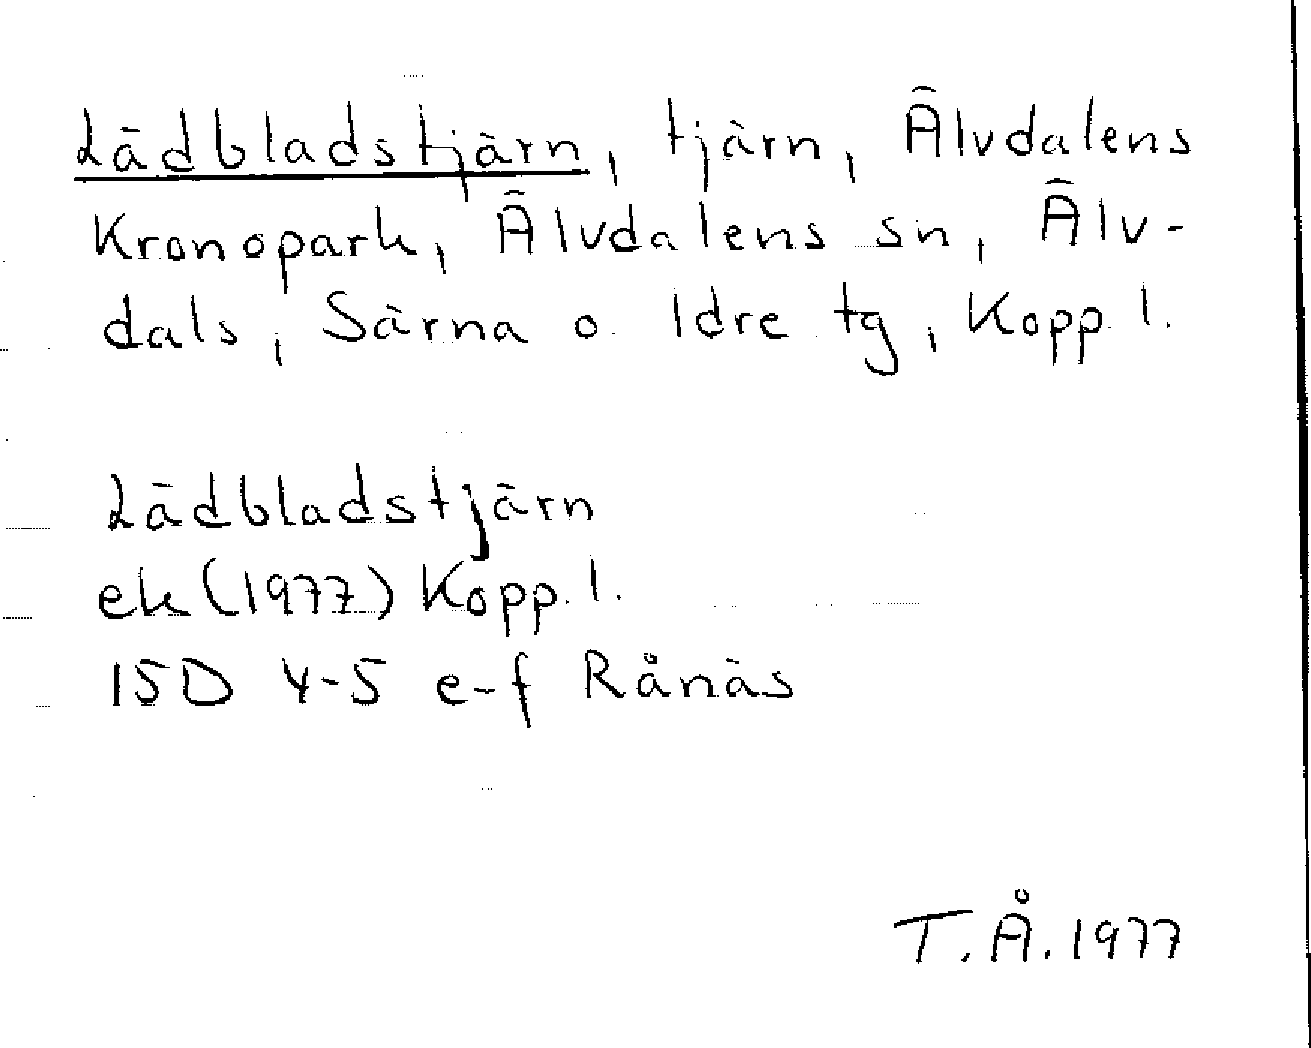 Lädbladstjärn, tjärn, Älvdalens
Kronopark, Älvdalens sn, Älv-
dals, Särna o. Idre tg, Kopp. l.
Lädbladstjärn
ek (1977) Kopp. l.
15D 4-5 e-f Rånäs
T.Å. 1977